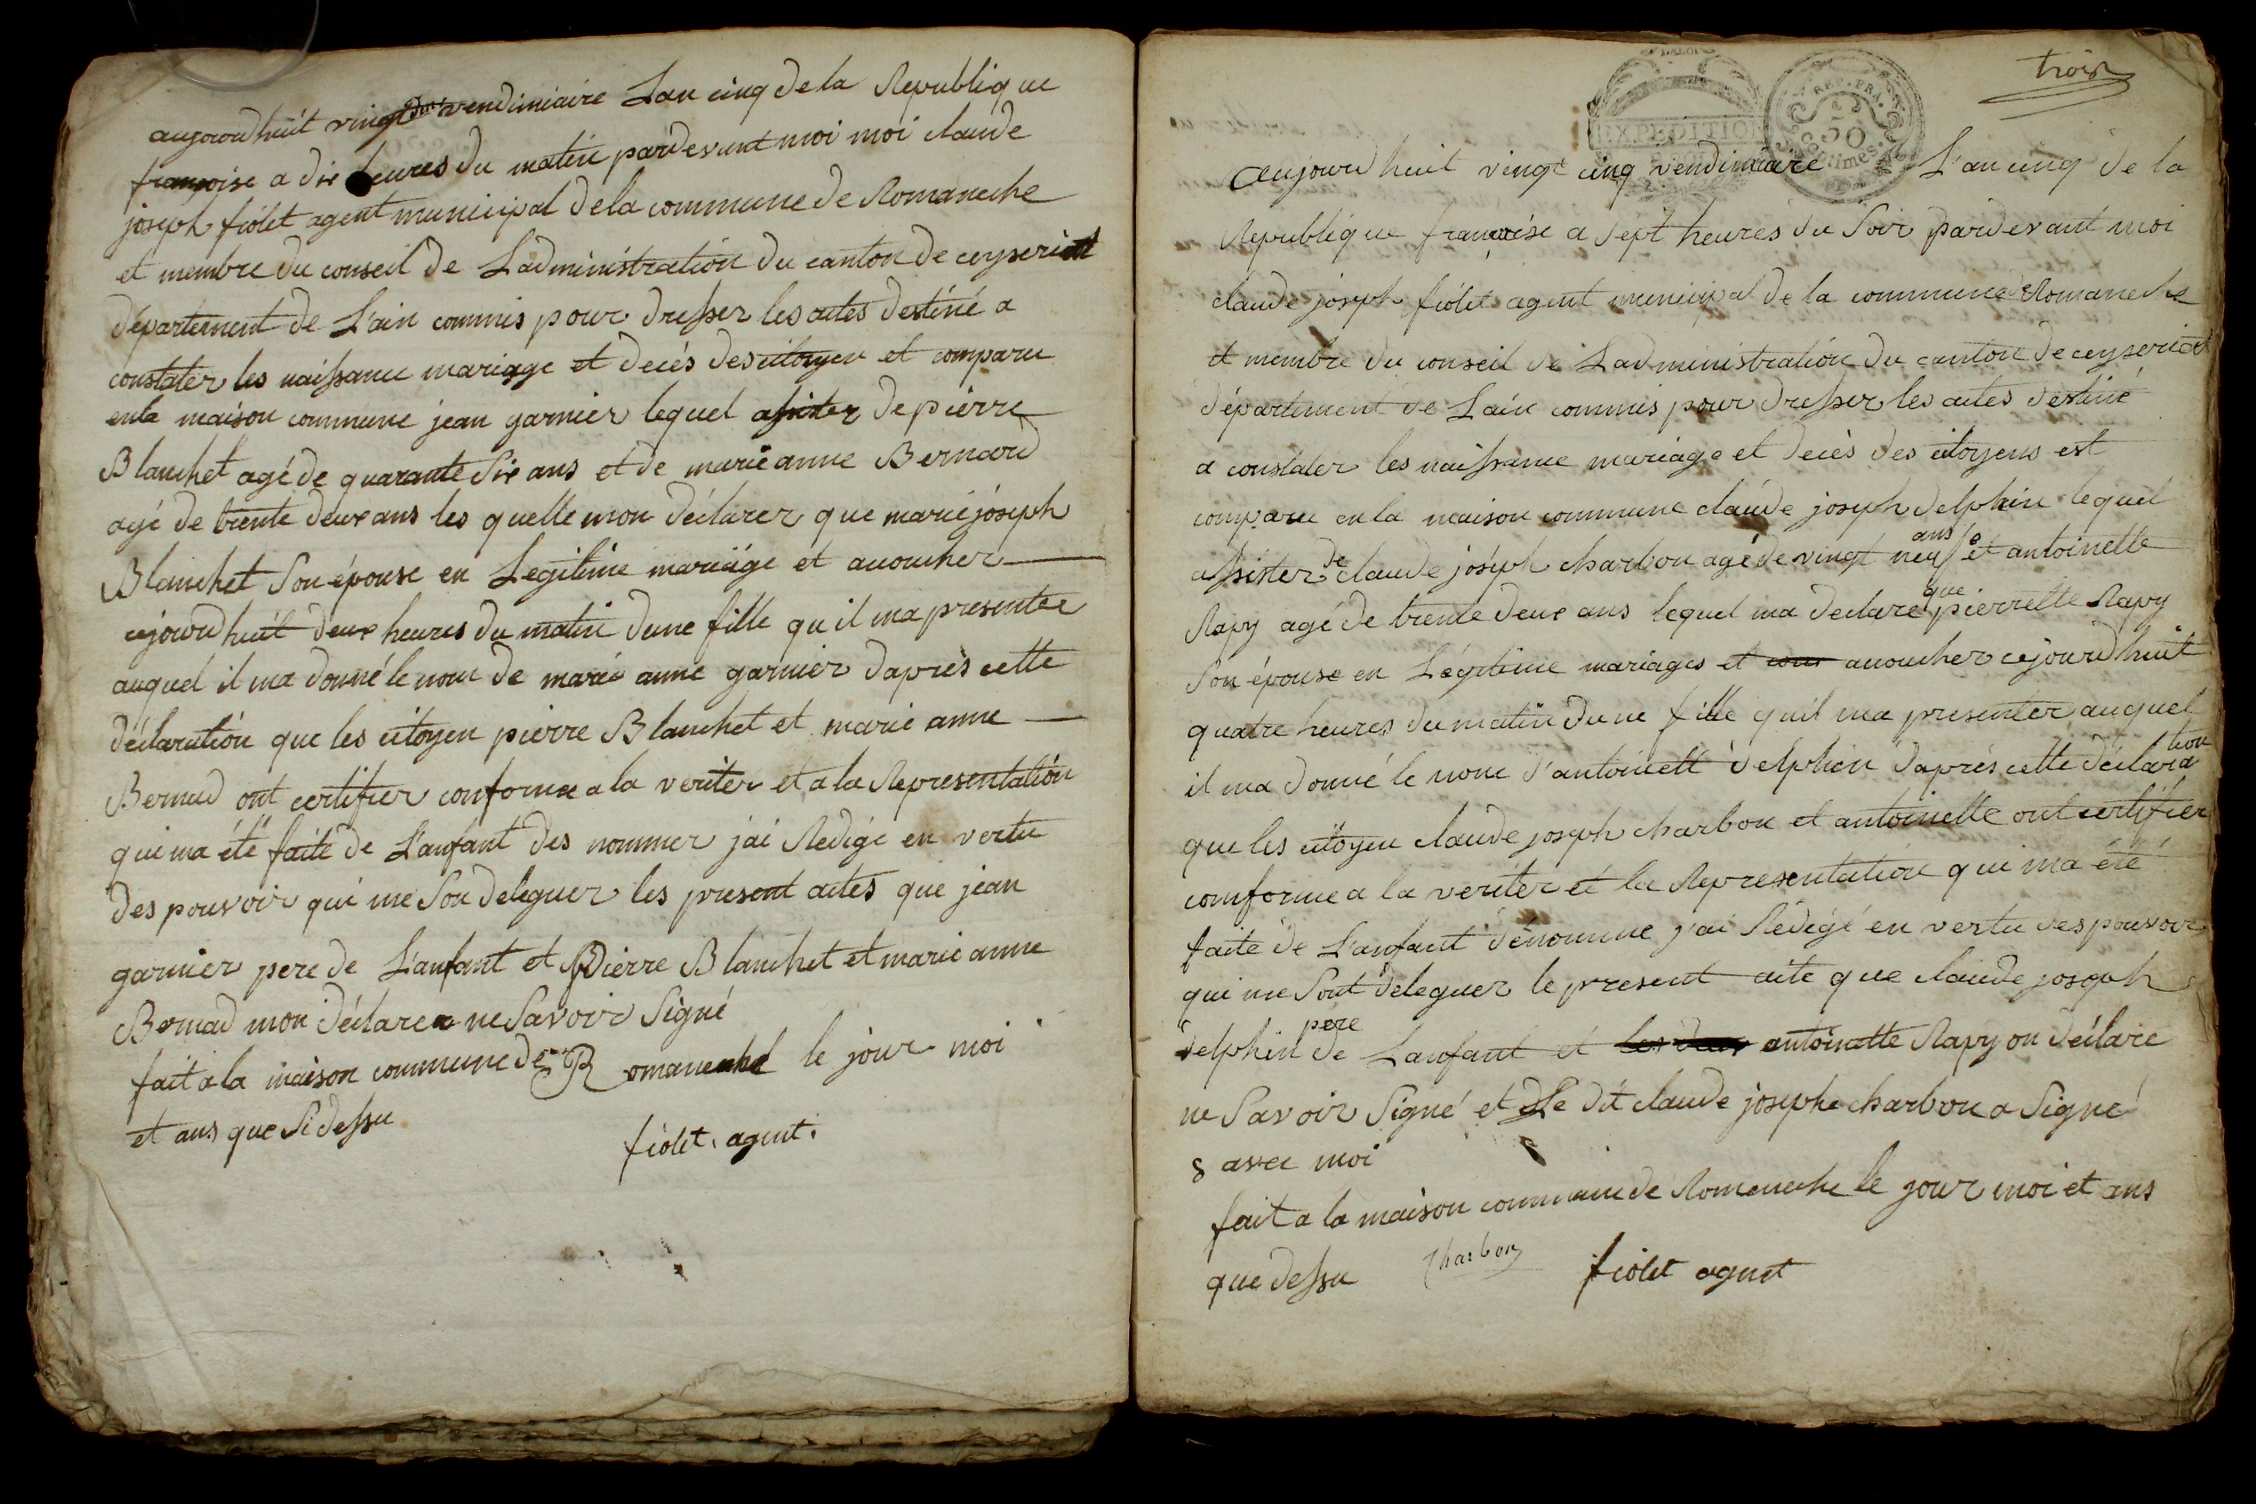 aujourdhuit vingt vendimiaire Lan cinq de la Republique
françoise a dix heures du matin pardevant moi moi claude
joseph fiolet agent municipal de la commune de Romaneche
et membre du conseil de Ladministration du canton de ceyseriat
département de L'ain commis pour dresser les actes destiné a
constater les naissance mariage et decés des citoyen et comparu
en la maison commune jean garnier lequel assister de pierre
Blanchet agé de quarante six ans et de marie anne Bernard
agé de trente deux ans les quelle mon déclarer que marie joseph
Blanchet Son épouse en Legitime mariage et acoucher
cejourdhuit deux heures du matin dune fille qu il ma presentee
auquel il ma donné le nom de marie anne garnier daprès cette
déclaration que les citoyen pierre Blanchet et marie anne
Bernad ont certifier conforme a la veriter et a la Representation
qui ma été faite de L'anfant des nommer jai Redigé en vertu
des pouvoir qui me Son deleguer les present actes que jean
garnier pere de L'anfant et Pierre Blanchet et marie anne
Bernad mon déclarer ne Savoir Signé
fait a la maison commune de Romaneche le jour moi
et ans que Si dessu
fiolet agent.
trois
EXPEDITION
REP. FRA.
50
centimes
aujourdhuit vingt cinq vendimiaire L'an cinq de la
Republique françoise a sept heures du Soir pardevant moi
claude joseph fiolet agent municipal de la commune de Romaneche
et membre du conseil de Ladministration du canton de ceyseriat
département de Lain commis pour dresser les actes destiné
a constater les naissance mariage et decès des citoyens est
comparu en la maison commune claude joseph delphin lequel
assister de claude joseph charbon agé de vingt neuf ans et antoinette
Rapy agé de trente deux ans lequel ma declare que pierrette Rapy
Son épouse en Légitime mariages et acoucher cejourdhuit
quatre heures du matin dune fille quil ma presenter auquel
il ma donné le nom d'antoinett delphin daprés cette déclaration
que les citoyen claude joseph charbon et antoinette ont certifier
comforme a la veriter et la Representation qui ma été
faite de L'anfant dénommé j'ai Rédigé en vertu des pouvoir
qui me Sont deleguer le present acte que claude joseph
delphin pere de Lanfant et antoinette Rapy on déclare
ne Savoir Signé et Le dit claude josephe charbon a Signé
avec moi
fait a la maison commune de Romeneche le jour moi et ans
que dessu charbon fiolet agent